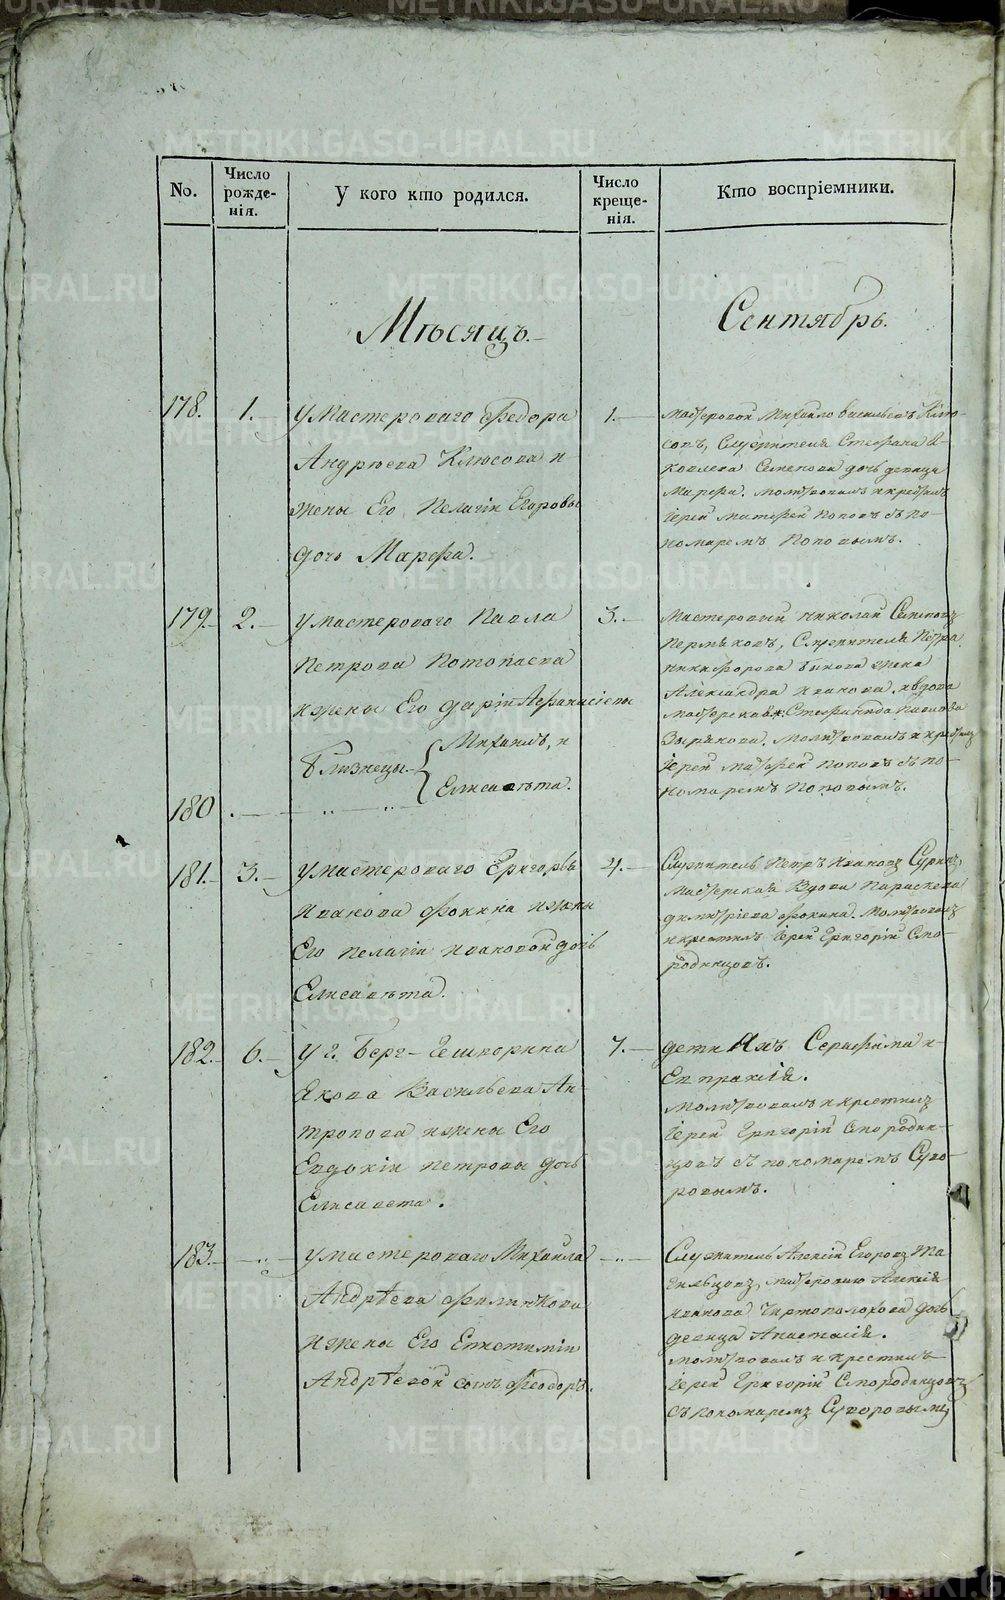 No.
Число рожде-нія.
У кого кто родился.
Число креще-нія.
Кто воспріемники.
Мѣсяцъ.
Сентябрь.
178.
1.
У Мастероваго Федора
Андрѣева Клюсова и
жены Его Пелагіи Егоровы
дочь Марѳа.
1.
Мастеровой Михайло Васильевъ Клю-
совъ, Служителя Стефана Я-
ковлева Семенова дочь девица
Марѳа. Молитвовалъ и крестилъ
Іерей Матфей Поповъ съ по-
номаремъ Поповымъ.
179.
2.
У мастероваго Павла
Петрова Потопаева
и жены Его Даріи Афанасіевы
Близнецы
Михаилъ, и
Елисавѣта.
180
3.
Мастеровый Николай Семеновъ
Пермяковъ, Служителя Петра
Никифорова Быкова жена
Александра Иванова, и вдова
Мастерская Стефанида Павлова
Зырянова. Молитвовалъ и крестилъ
Іерей Матфей Поповъ съ по-
номаремъ Поповымъ.
181.
3.
У мастероваго Григорья
Иванова Фокина и жены
Его Пелагіи Ивановой дочь
Елисавѣта.
4.
Служитель Петръ Ивановъ
Мастерская Вдова Параскева
Димитріева Фокина. Молитвовалъ
и крестилъ Іерей Григорій Смо-
родинцовъ.
182.
6.
У г. Берг-Гешворена
Якова Васильева Ан-
тропова и жены Его
Евдокіи Петровы дочь
Елисавета.
7.
дети Ихъ Серафима и
Евпраксія.
Молитвовалъ и крестилъ
Іерей Григорій Смородин-
цовъ съ пономаремъ Суво-
ровымъ.
183.
У мастероваго Михаила
Андрѣева Филинкова
и жены Его Епистиміи
Андрѣевой сынъ Феодоръ.
Служитель Алексій Егоровъ
мастероваго Алексія
Иванова Чертополохова дочь
девица Анастасія.
Молитвовалъ и крестилъ
Іерей Григорій Смородинцовъ
съ пономаремъ Суворовымъ
METRIKI.GASO-URAL.RU